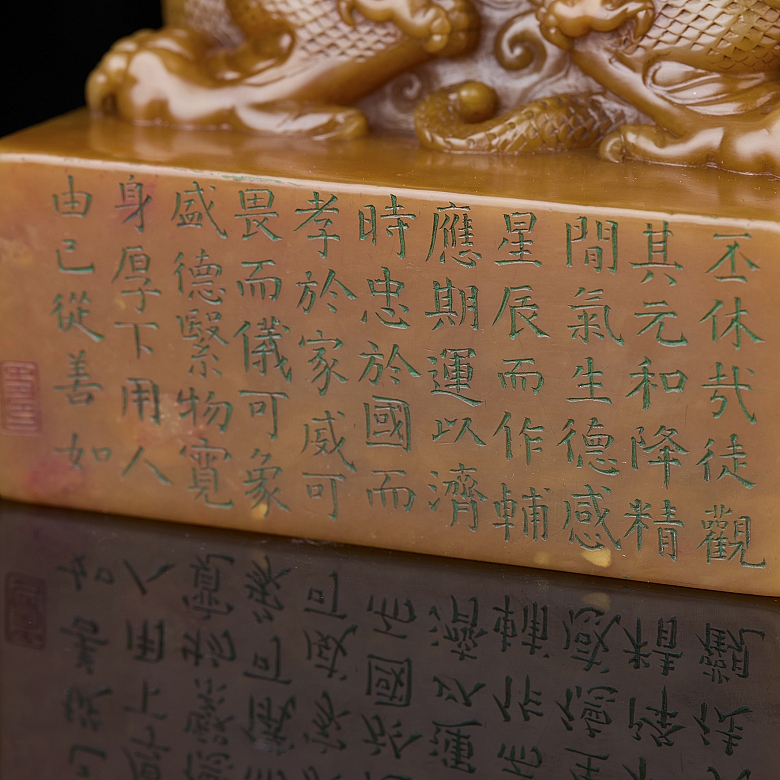 丕休哉徒觀
其元和降精
間氣生德感
星辰而作輔
應期運以濟
時忠於國而
孝於家威可
畏而儀可象
盛德緊物寬
身厚下用人
由己從善如